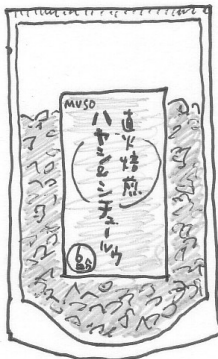 MUSO
直火焙煎
ハヤシ&シチュールゥ
6皿分